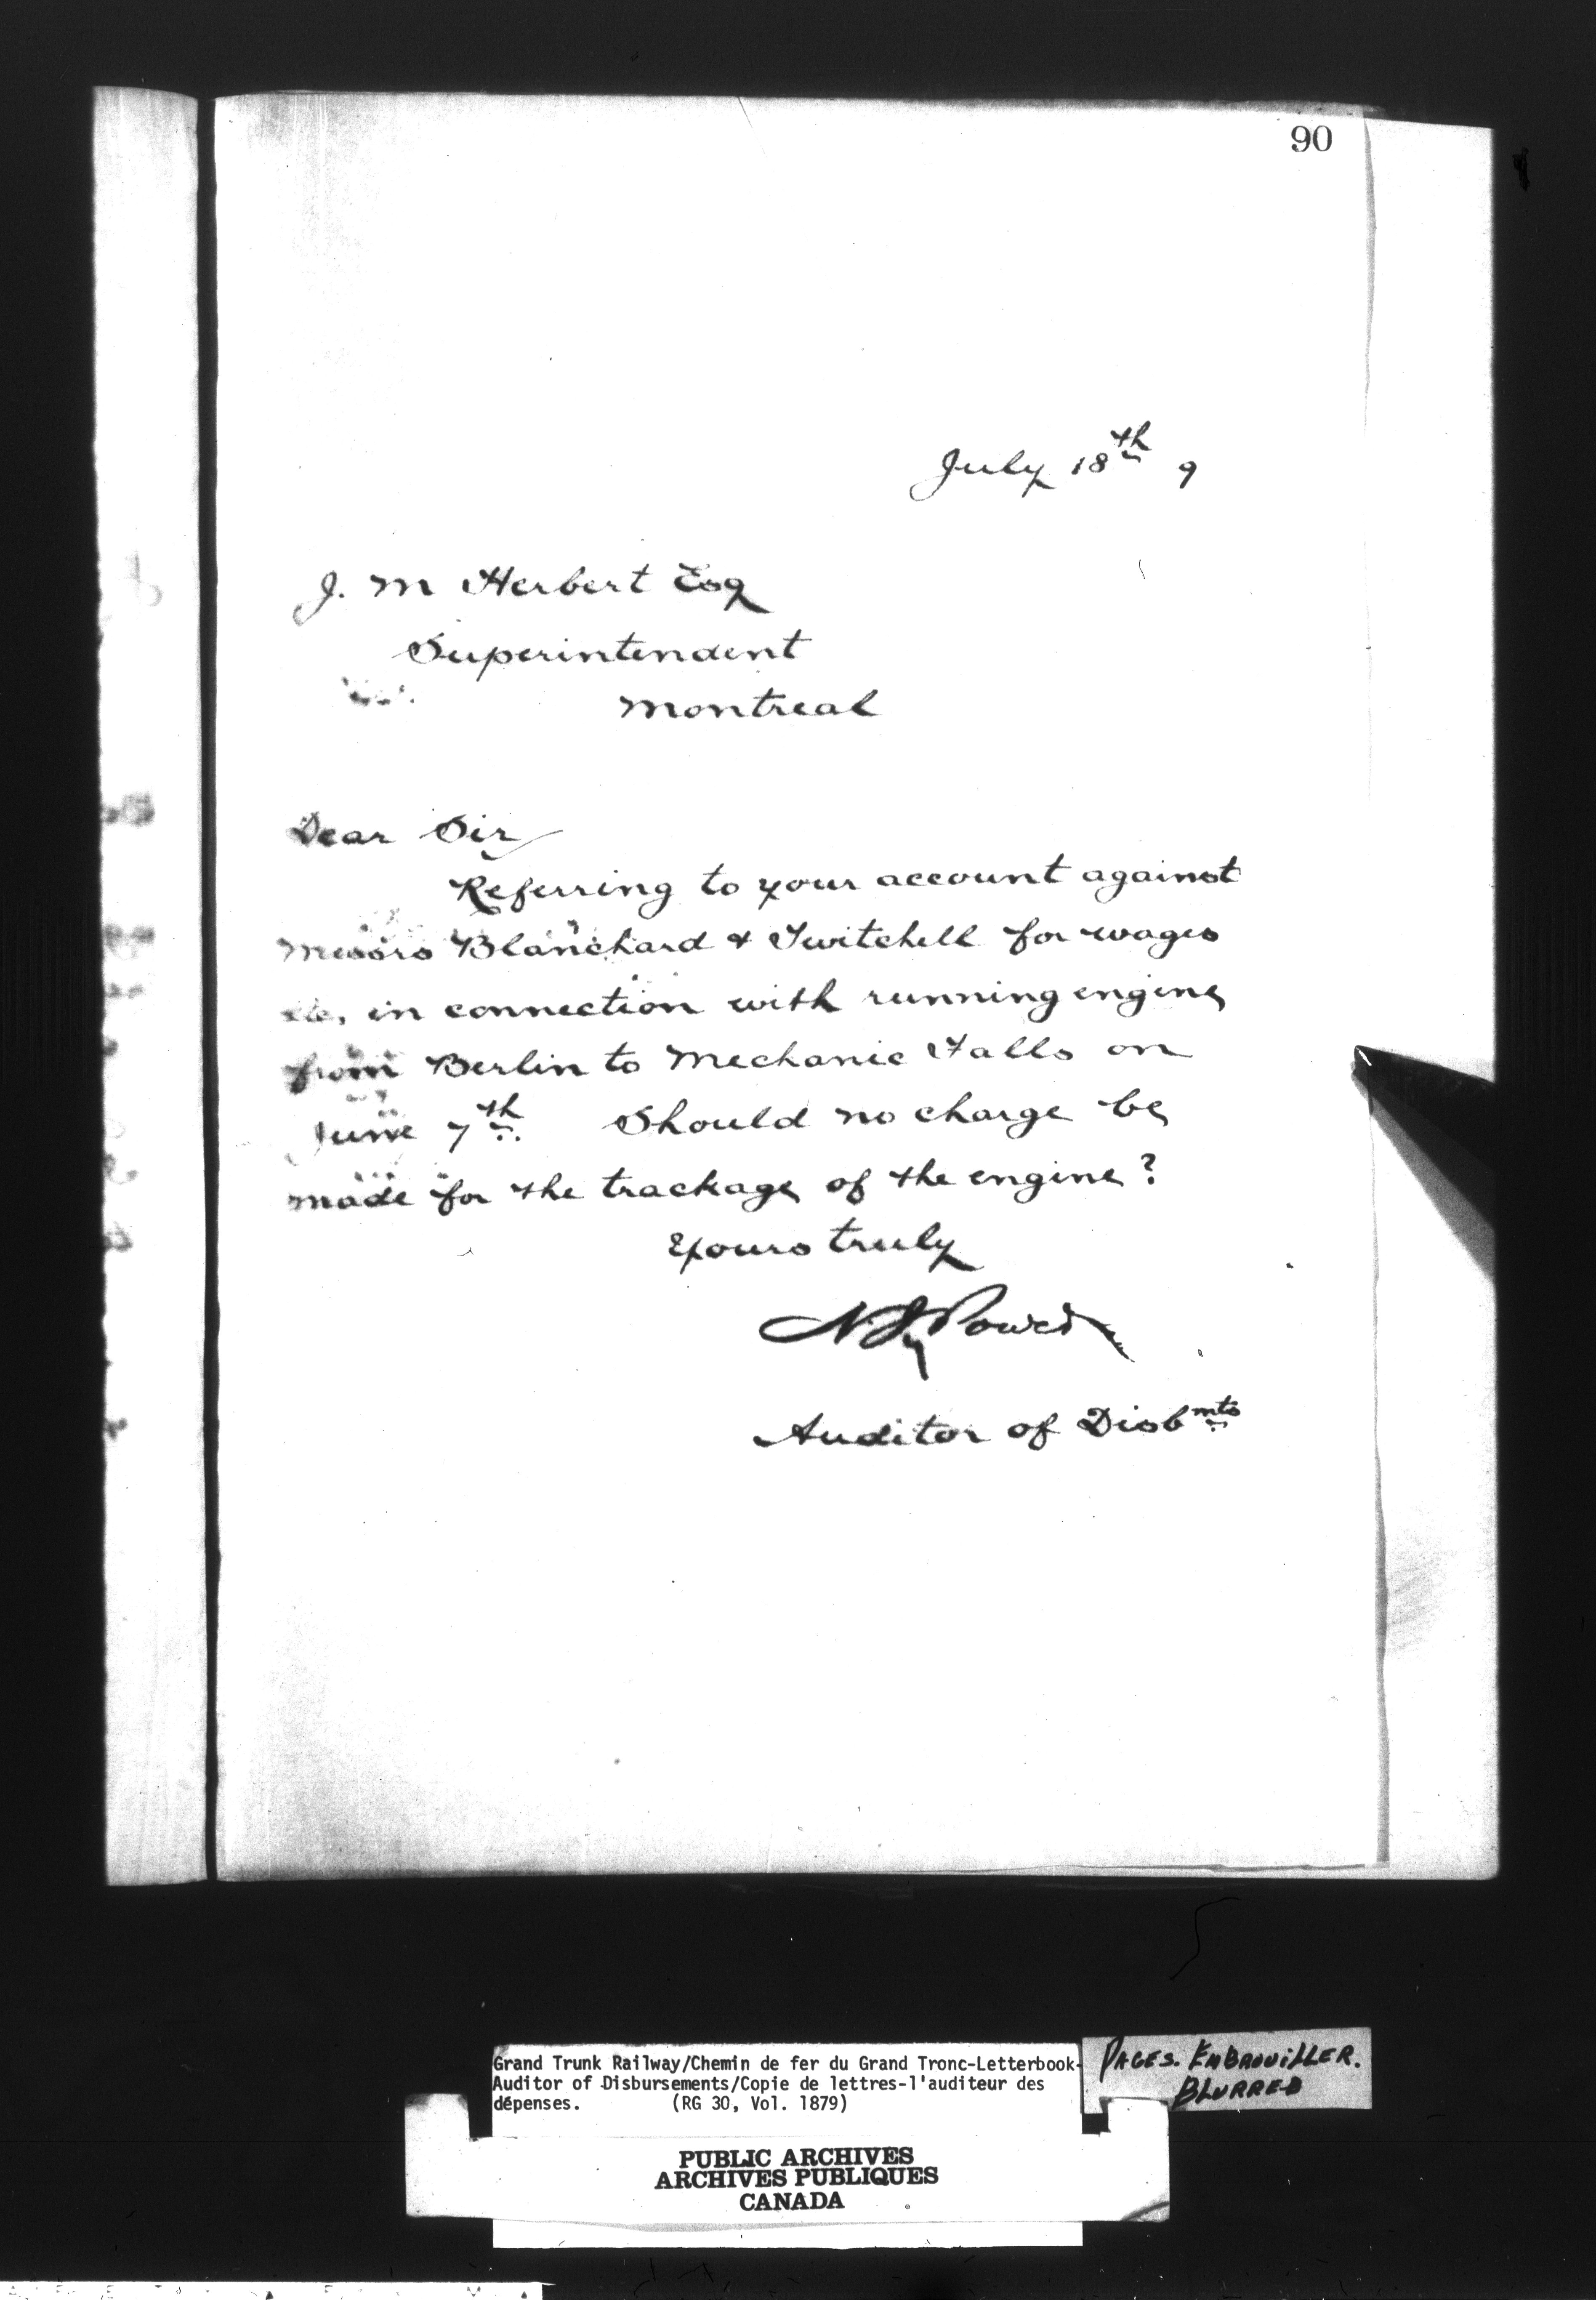 90
July 18th 9
J. M Herbert Esq
Superintendent
Montreal
Dear Sir
Referring to your account against
Messrs Blanchard & Twitchell for wages
etc, in connection with running engine
from Berlin to Mechanic Falls on
June 7th. Should no charge be
made for the trackage of the engine?
Yours truly
N J Power
Auditor of Disbmts
Grand Trunk Railway/Chemin de fer du Grand Tronc-Letterbook-
Auditor of Disbursements/Copie de lettres-l'auditeur des
dépenses. (RG 30, Vol. 1879)
PAGES. EMBROUILLER.
BLURRED
PUBLIC ARCHIVES
ARCHIVES PUBLIQUES
CANADA